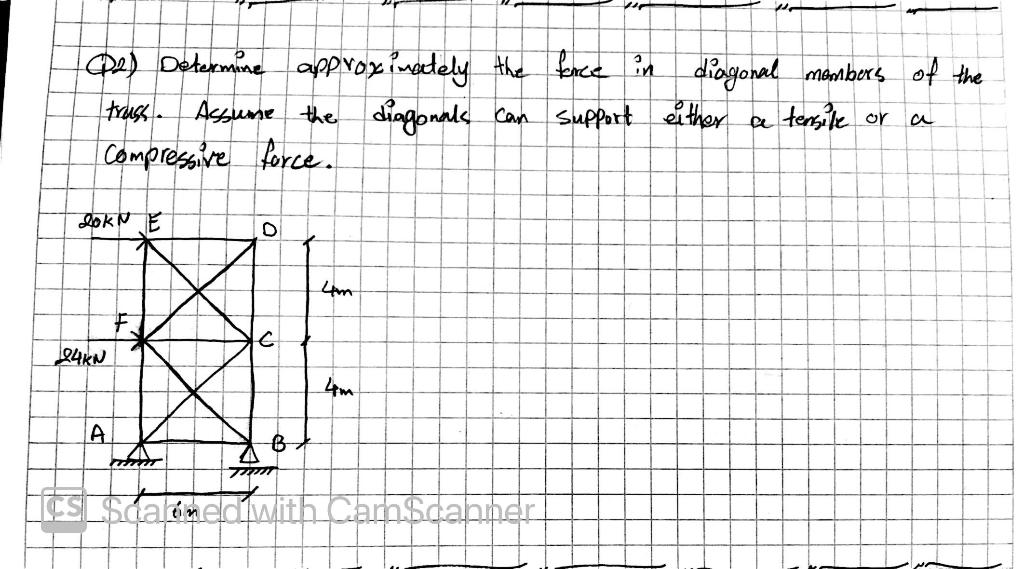 Q2) Determine approximately the force in diagonal members of the
truss. Assume the diagonals can support either a tensile or a
Compressive force.
20kN E
D
4m
F
C
24kN
4m
A
B
CS Scanned with CamScanner